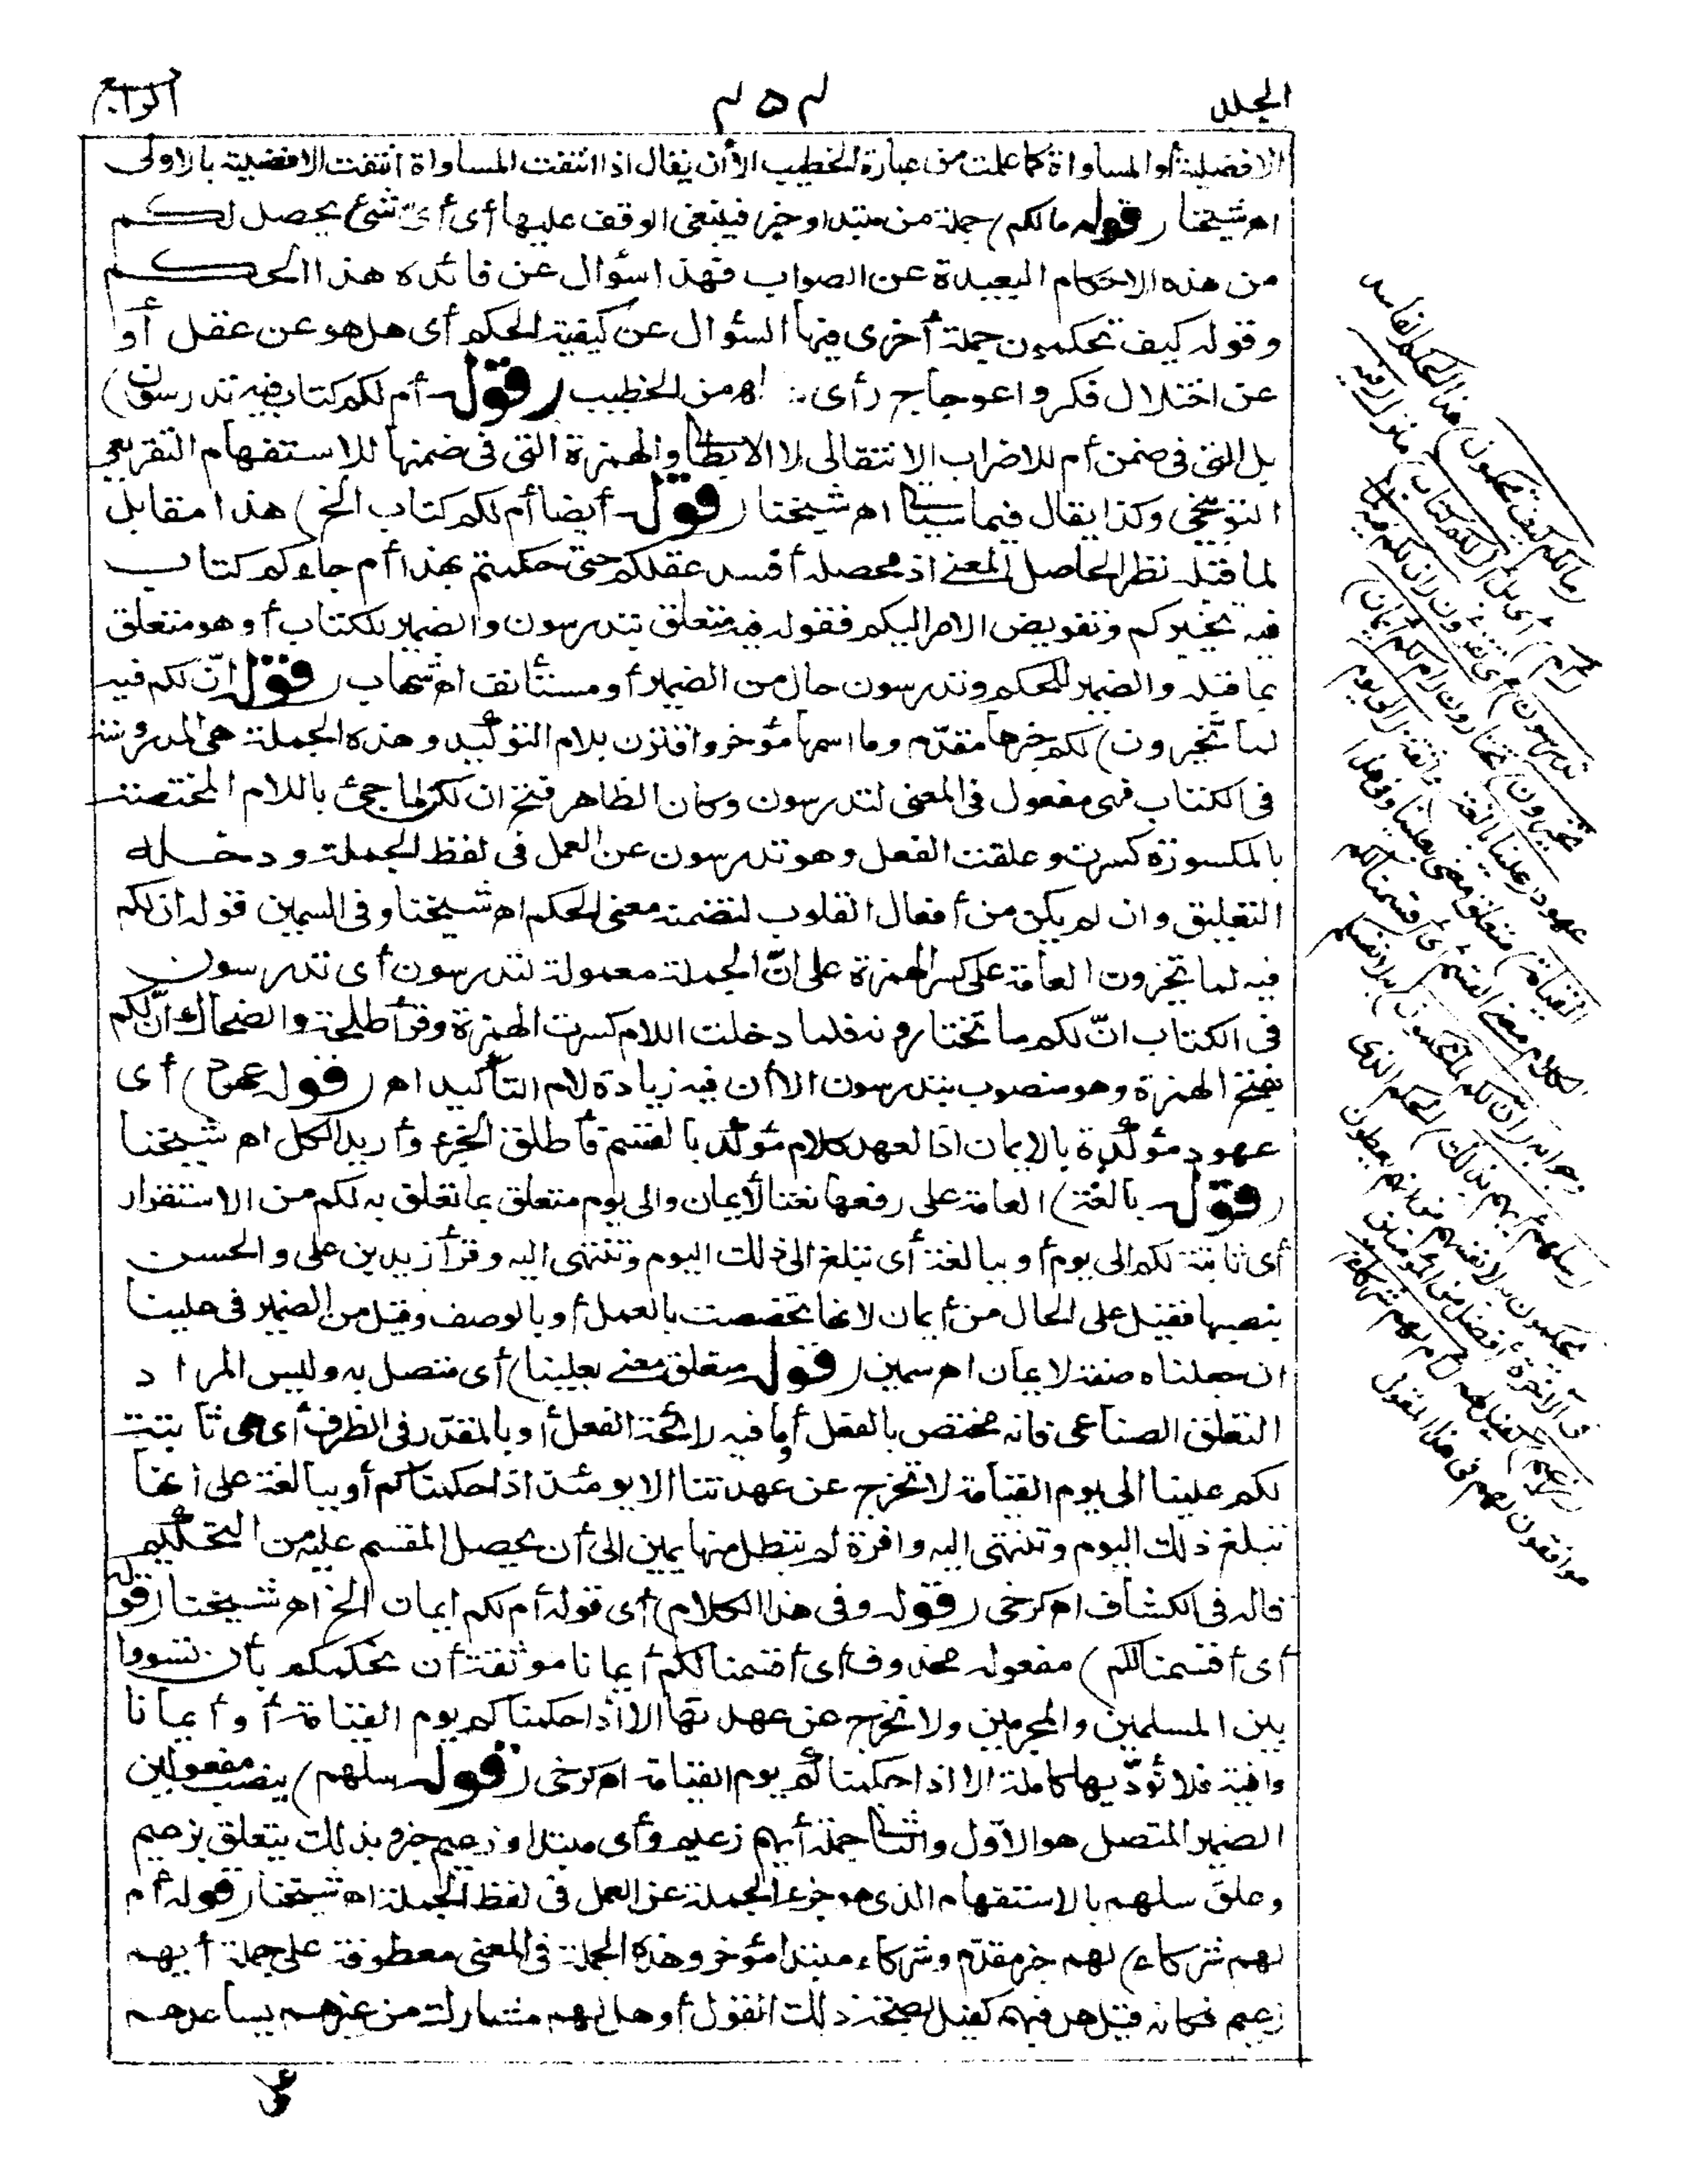 المجلد
٤٥٤
الرابع
الافضلية أو المساواة كما علمت من عبارة الخطيب الا أن يقال اذا انتفت المساواة انتفت الافضلية بالاولى
اه شيخنا (قوله ما لكم) جملة من مبتدا وخبر فينبغى الوقف عليها أى أى شئ يحصل لكم
من هذه الاحكام البعيدة عن الصواب فهذا سؤال عن فائدة هذا الحكم
وقوله كيف تحكمون جملة أخرى فيها السؤال عن كيفية الحكم أى هل هو عن عقل أو
عن اختلال فكر واعوجاج رأى. اه من الخطيب (قوله أم لكم كتاب فيه تدرسون)
بل التى فى ضمن أم للاضراب الانتقالى لا الابطا والهمزة التى فى ضمنها للاستفهام التقريعى
التوبيخى وكذا يقال فيما سيأ اه شيخنا (قوله أيضا أم لكم كتاب الخ) هذا مقابل
لما قبله نظرا لحاصل المعنى اذ محصله أفسد عقلكم حتى حكمتم بهذا أم جاءكم كتاب
فيه تخييركم وتفويض الامر اليكم فقوله فيه متعلق بتدرسون والضمير للكتاب أو هو متعلق
بما قبله والضمير للحكم وتدرسون حال من الضمير أو مستأنف اه شهاب (قوله انّ لكم فيه
لما تخيرون) لكم خبرها مقدّم وما اسمها مؤخر واقترن بلام التوكيد وهذه الجملة هى المدروسة
فى الكتاب فهى مفعول فى المعنى لتدرسون وكان الظاهر فتح ان لكن لما جئ باللام المختصة
بالمكسورة كسرت وعلقت الفعل وهو تدرسون عن العمل فى لفظ الجملة ودخله
التعليق وان لم يكن من أفعال القلوب لتضمنه معنى الحكم اه شيخنا وفى السمين قوله ان لكم
فيه لما تخيرون العامة على كسر الهمزة على انّ الجملة معمولة لتدرسون أى تدرسون
فى الكتاب انّ لكم ما تختارونه فلما دخلت اللام كسرت الهمزة وقرأ طلحة والضحاك أنّ لكم
بفتح الهمزة وهو منصوب بتدرسون الا أن فيه زيادة لام التأكيد اه (قوله عهود) أى
عهود مؤكدة بالايمان اذ العهد كلام مؤكد بالقسم فأطلق الجزء وأريد الكل اه شيخنا
(قوله بالغة) العامة على رفعها نعتا لأيمان والى يوم متعلق بما تعلق به لكم من الاستقرار
أى ثابتة لكم الى يوم أو ببالغة أى تبلغ الى ذلك اليوم وتنتهى اليه وقرأ زيد بن على والحسن
بنصبها فقيل على الحال من أيمان لانها تخصصت بالعمل أو بالوصف وقيل من الضمير فى علينا
ان جعلناه صفة لايمان اه سمين (قوله متعلق معنى بعلينا) أى متصل به وليس المراد
التعلق الصناعى فانه مختص بالفعل أو ما فيه رائحة الفعل أو بالمقدّر فى الظرف أى هى ثابتة
لكم علينا الى يوم القيامة لا تخرج عن عهدتنا الا يومئذ اذا حكمناكم أو ببالغة على انها
تبلغ ذلك اليوم وتنتهى اليه وافرة لم تبطل منها يمين الى أن يحصل المقسم عليه من التحكيم
قاله فى الكشاف اه كرخى (قوله وفى هذا الكلام) أى قوله أم لكم ايمان الخ اه شيخنا (قوله
أى أقسمنا لكم) مفعوله محذوف أى أقسمنا لكم أيمانا موثقة أن نحكمكم بأن تسووا
بين المسلمين والمجرمين ولا تخرج عن عهدتها الا اذا حكمناكم يوم القيامة أو أيمانا
وافية فلا نؤدّيها كاملة الا اذا حكمناكم يوم القيامة اه كرخى (قوله سلهم) ينصب مفعولين
الضمير المتصل هو الاوّل والثا جملة أيهم زعيم وأى مبتدا وزعيم خبره وبذلك يتعلق بزعيم
وعلق سلهم بالاستفهام الذى هو جزء الجملة عن العمل فى لفظ الجملة اه شيخنا (قوله أم
لهم شركاء) لهم خبر مقدّم وشركاء مبتدا مؤخر وهذه الجملة فى المعنى معطوفة على جملة أيهم
زعيم فكانه قيل هل فيهم كفيل بصحة ذلك القول أو هل لهم مشاركة من غيرهم يساعدهم
(ما لكم كيف تحكمون) هذا الحكم الفاسد
(أم) أى بل أ (لكم كتاب) منزل (فيه
تدرسون) أى تقرءون (ان لكم فيه لما
تخيرون) تختارون (أم لكم أيمان)
عهود (علينا بالغة) واثقة (الى يوم
القيامة) متعلق معنى بعلينا وفى هذا
الكلام معنى القسم أى أقسمنا لكم
وجوابه (ان لكم لما تحكمون) به لانفسكم
(سلهم أيهم بذلك) الحكم الذى
يحكمون به لانفسهم من انهم يعطون
فى الآخرة أفضل من المؤمنين
(زعيم) كفيل لهم (أم لهم) شركاء
موافقون لهم فى هذا المقول